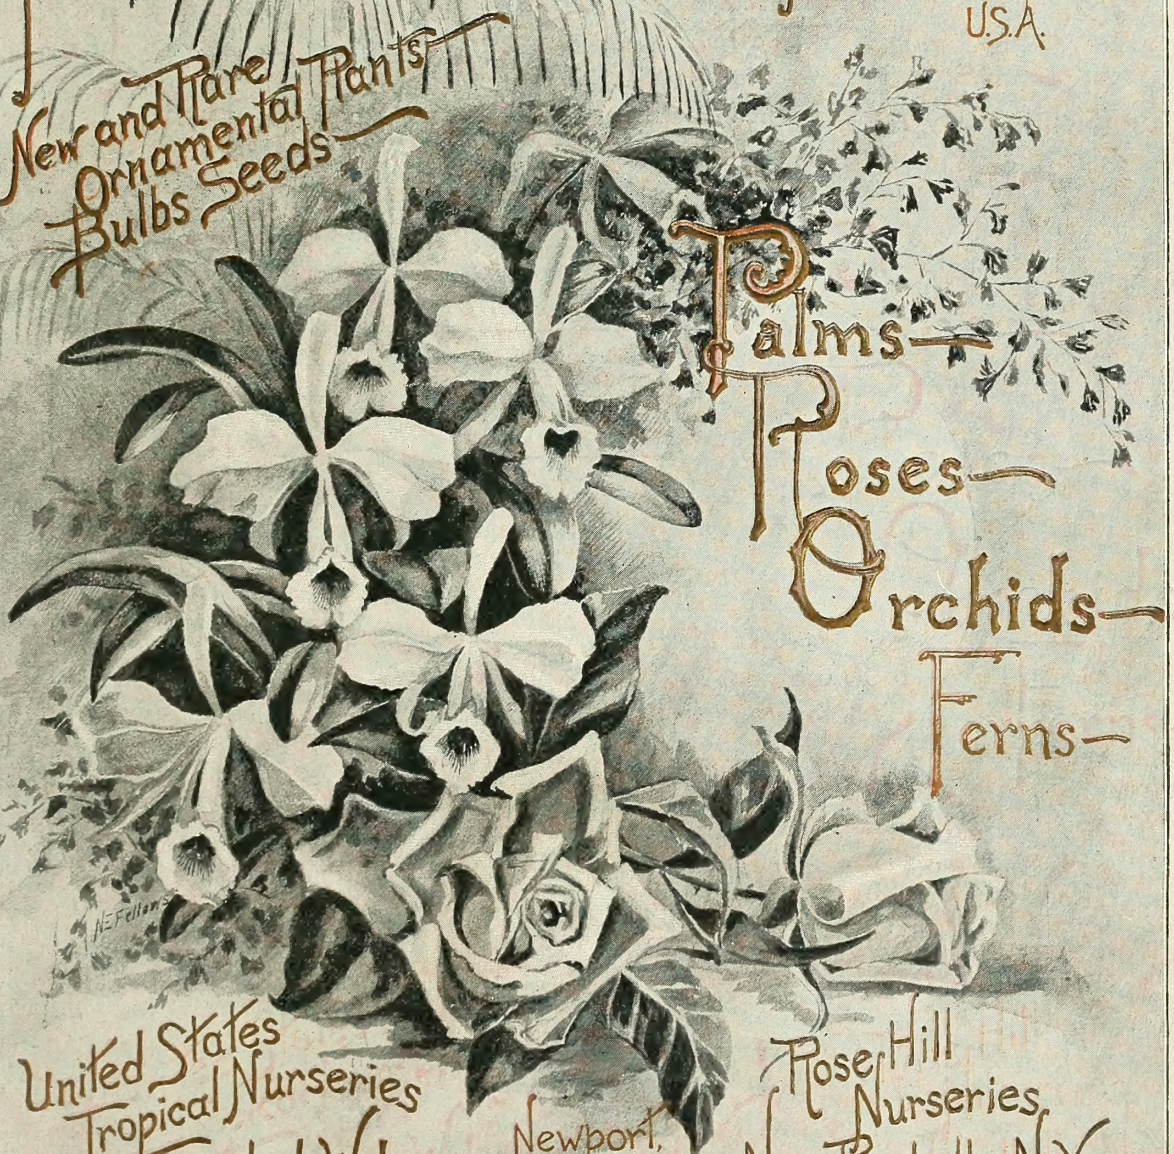 U.S.A.
New and Rare
Ornamental Plants
Bulbs Seeds
Palms
Roses
Orchids
Ferns
N E Fellows
United States
Tropical Nurseries
Rose Hill
Nurseries,
Newport,
N.Y.